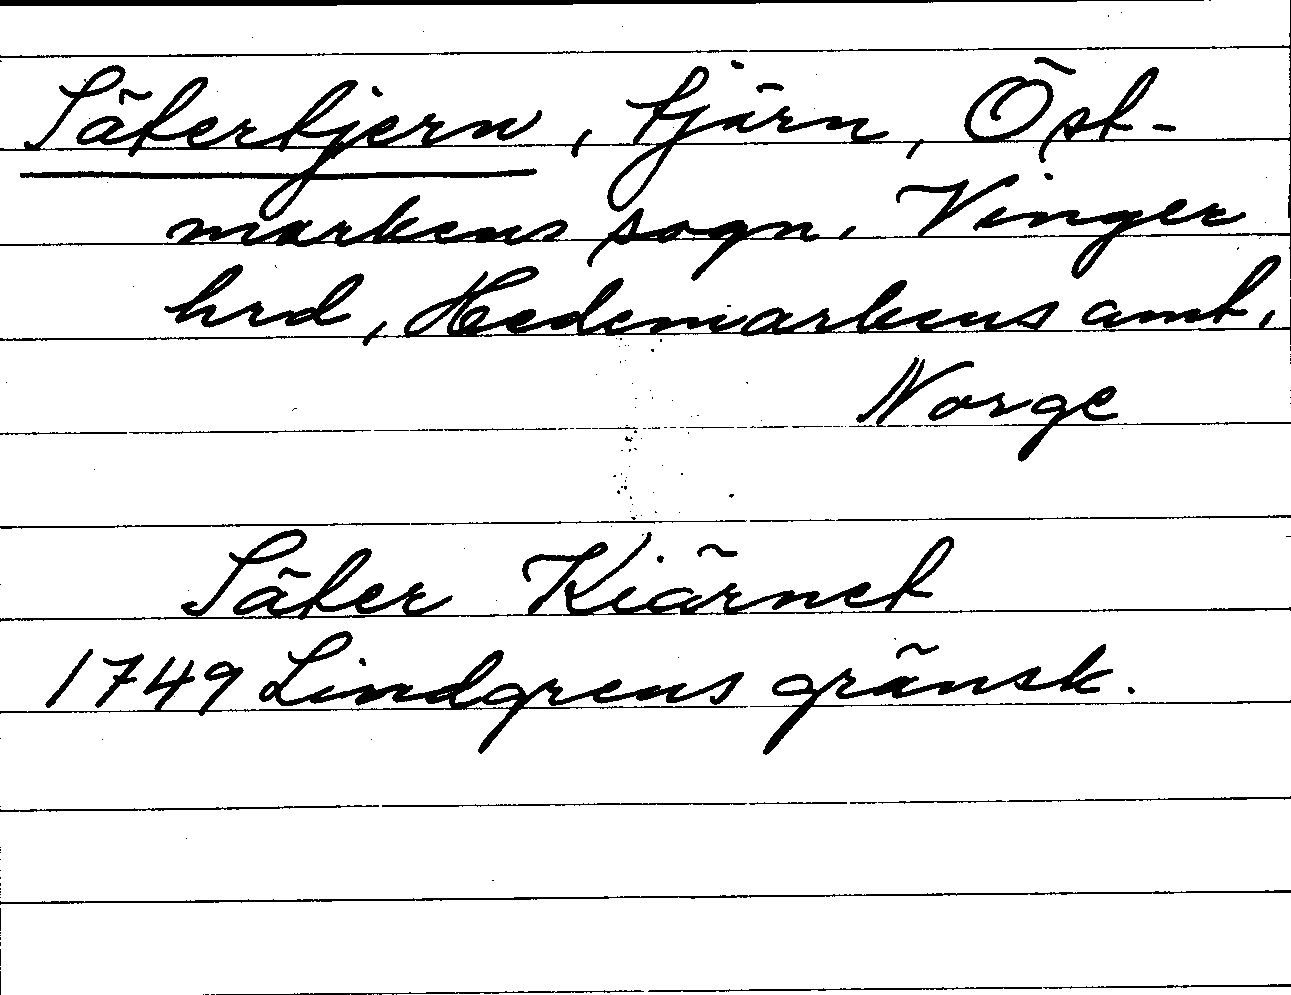 Sätertjern, tjärn, Öst-
markens sogn, Vinger
hrd, Hedemarkens amt,
Norge
Säter Kiärnet
1749 Lindgrens gränsk.